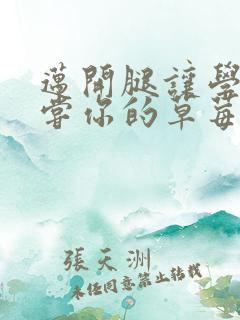 邁開腿讓學
嘗你的草莓
張天洲
未經同意禁止轉載